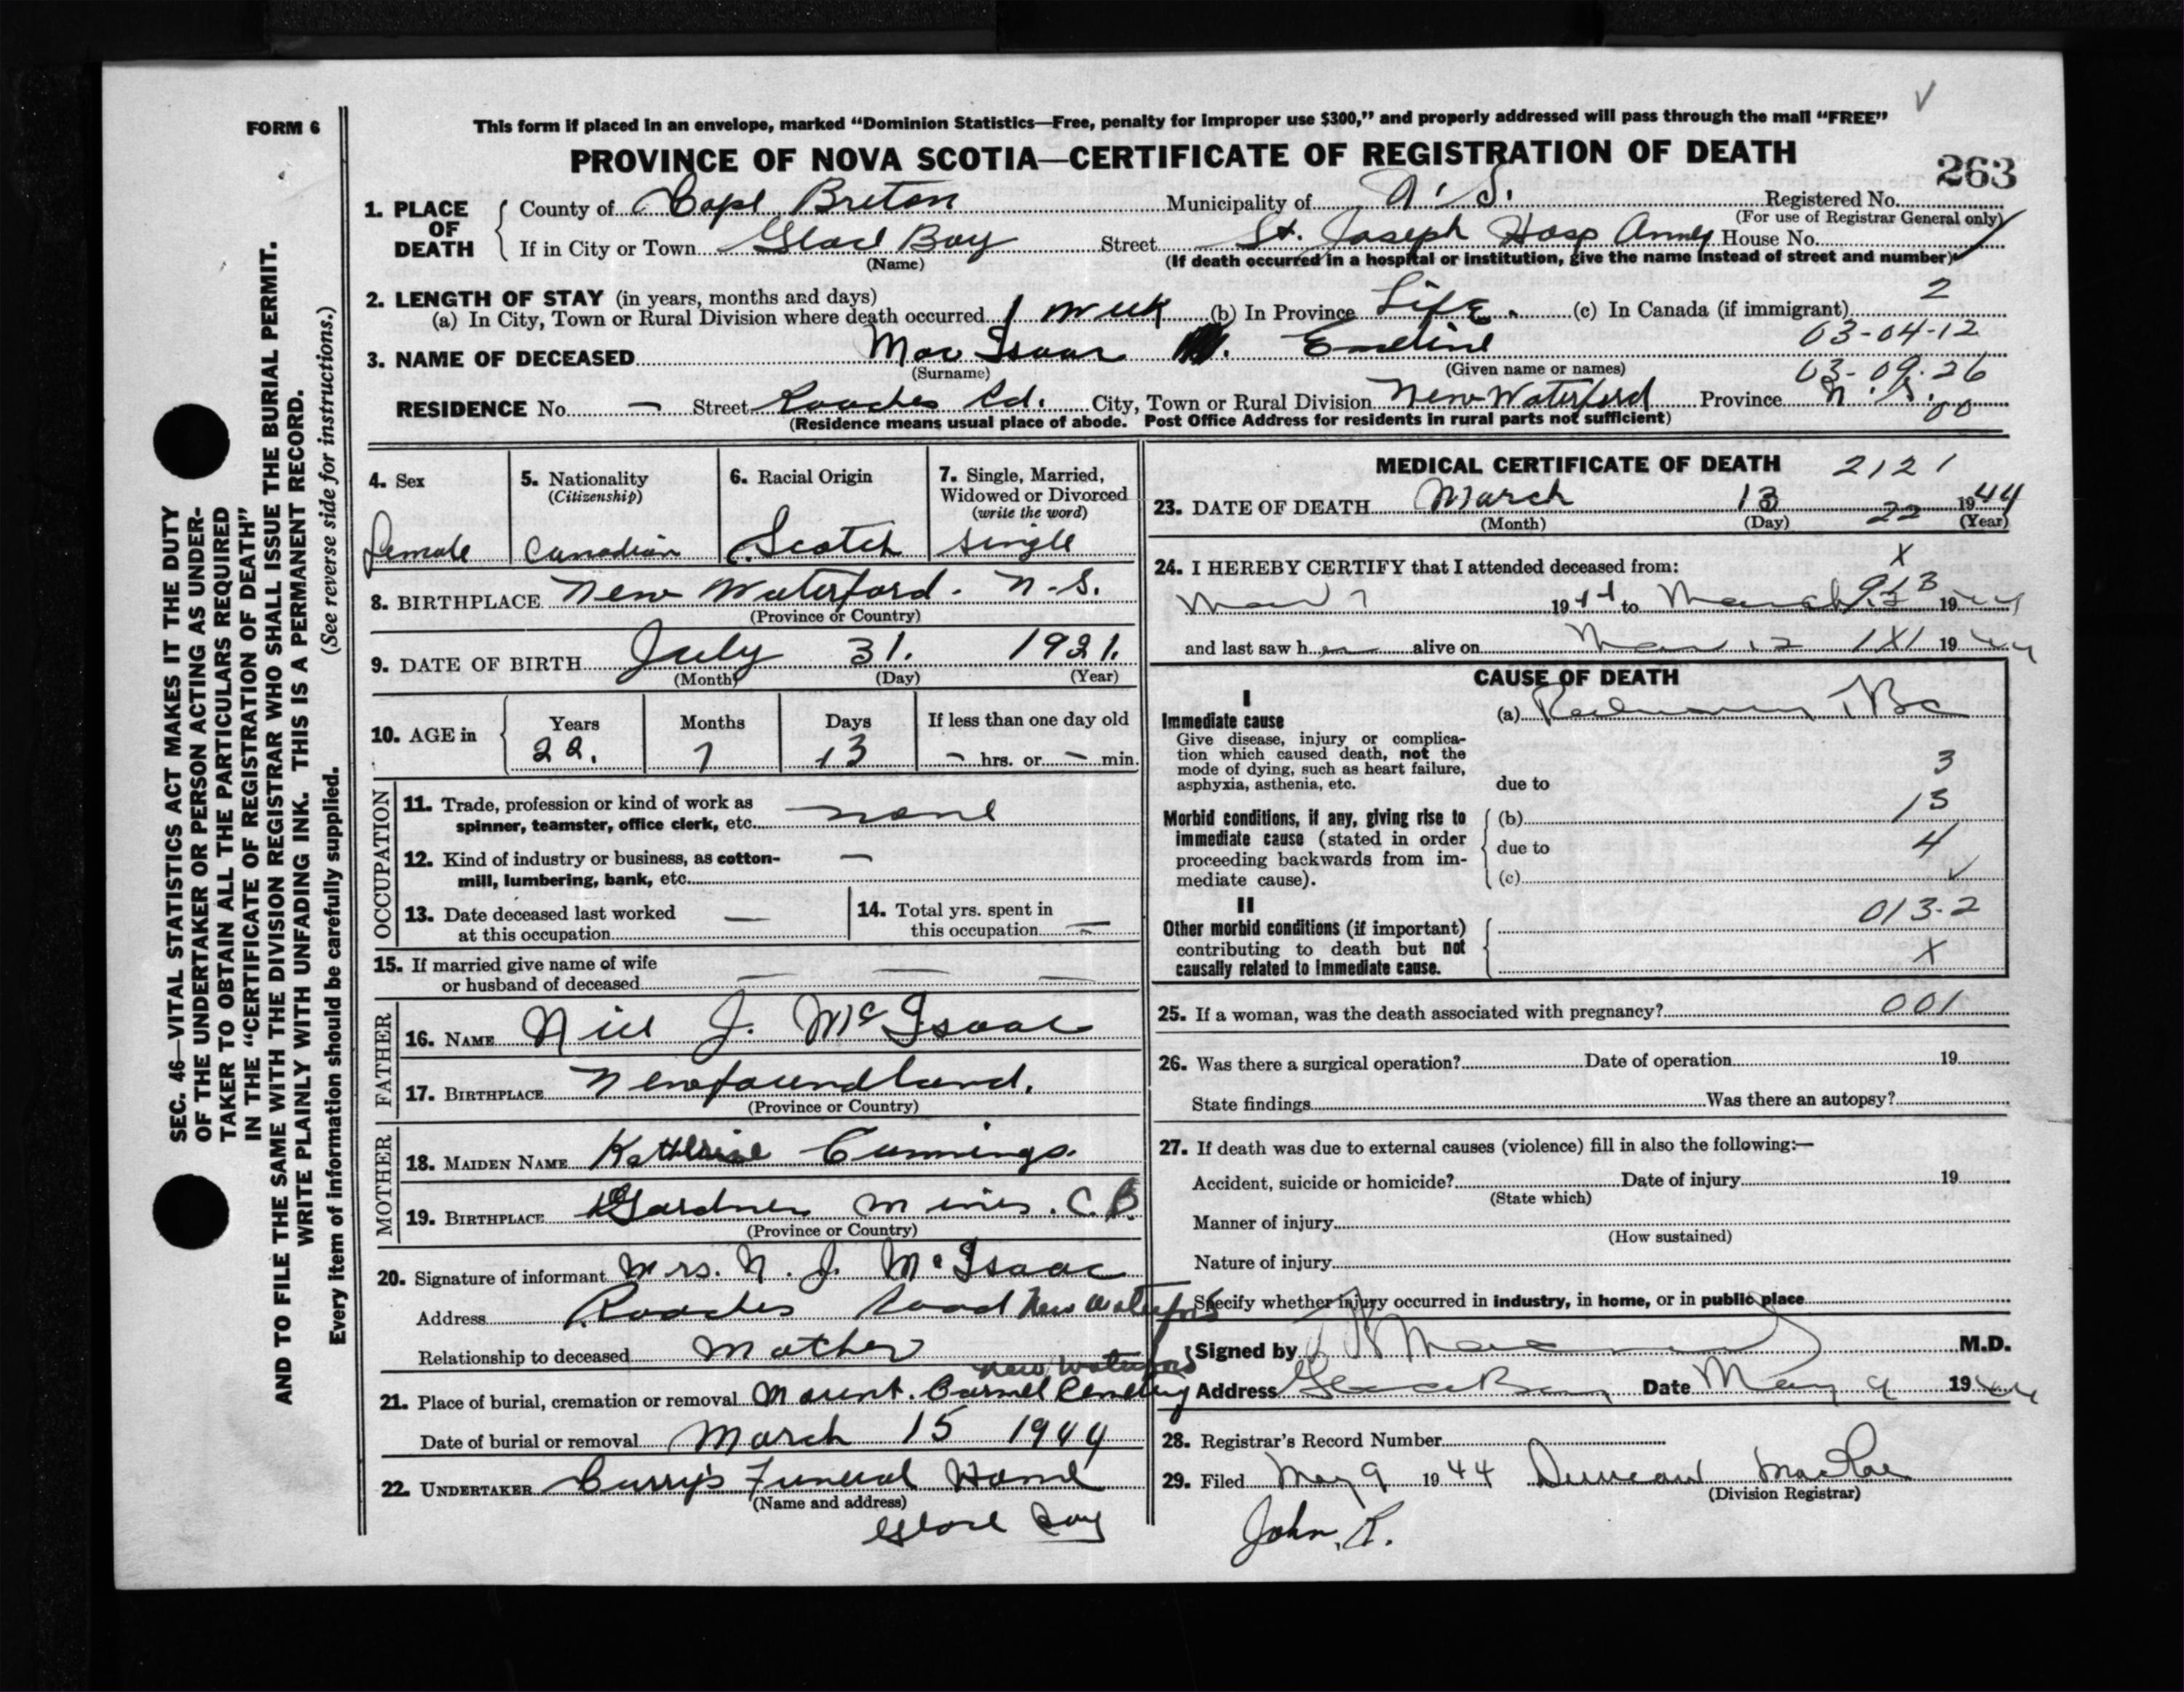 FORM 6
This form if placed in an envelope, marked “Dominion Statistics—Free, penalty for improper use $300,” and properly addressed will pass through the mail “FREE”
PROVINCE OF NOVA SCOTIA—CERTIFICATE OF REGISTRATION OF DEATH
263
1. PLACE OF DEATH
County of Cape Breton Municipality of N. S. Registered No.
(For use of Registrar General only)
If in City or Town Glace Bay Street St. Joseph Hosp Annex House No.
(Name) (If death occurred in a hospital or institution, give the name instead of street and number)
2. LENGTH OF STAY (in years, months and days) 2
(a) In City, Town or Rural Division where death occurred 1 week (b) In Province Life. (c) In Canada (if immigrant)
03-04-12
3. NAME OF DECEASED Mac Isaac Emeline
(Surname) (Given name or names) 03-09-26
RESIDENCE No. — Street Roaches Rd. City, Town or Rural Division New Waterford Province N. S.
(Residence means usual place of abode. Post Office Address for residents in rural parts not sufficient) 00
4. Sex Female
5. Nationality (Citizenship) Canadian
6. Racial Origin Scotch
7. Single, Married, Widowed or Divorced (write the word) Single
8. BIRTHPLACE New Waterford. N.S.
(Province or Country)
9. DATE OF BIRTH July 31. 1921.
(Month) (Day) (Year)
10. AGE in Years Months Days If less than one day old
22. 7 13 — hrs. or — min.
OCCUPATION
11. Trade, profession or kind of work as spinner, teamster, office clerk, etc. none
12. Kind of industry or business, as cotton-mill, lumbering, bank, etc. —
13. Date deceased last worked at this occupation —
14. Total yrs. spent in this occupation —
15. If married give name of wife or husband of deceased — — —
FATHER
16. NAME Niel J. McIsaac
17. BIRTHPLACE Newfoundland.
(Province or Country)
MOTHER
18. MAIDEN NAME Katherine Cummings.
19. BIRTHPLACE Gardner Mines. C.B.
(Province or Country)
20. Signature of informant Mrs. N. J. McIsaac
Address Roaches Road New Waterford
Relationship to deceased Mother
New Waterford
21. Place of burial, cremation or removal Mount. Carmel Cemetery
Date of burial or removal March 15 1944
22. UNDERTAKER Curry's Funeral Home
(Name and address)
Glace Bay
MEDICAL CERTIFICATE OF DEATH 2121
23. DATE OF DEATH March 13 22 1944
(Month) (Day) (Year)
24. I HEREBY CERTIFY that I attended deceased from: X
Mar 7 1944 to March 13 1944
and last saw her alive on Mar 12 1X1 1944
CAUSE OF DEATH
I
Immediate cause (a) Pulmonary TBc
Give disease, injury or complication which caused death, not the mode of dying, such as heart failure, asphyxia, asthenia, etc. due to 3
Morbid conditions, if any, giving rise to immediate cause (stated in order proceeding backwards from immediate cause).
(b) 13
due to 4
(c)
II
Other morbid conditions (if important) contributing to death but not causally related to immediate cause.
013-2
X
25. If a woman, was the death associated with pregnancy? 001
26. Was there a surgical operation? Date of operation 19
State findings Was there an autopsy?
27. If death was due to external causes (violence) fill in also the following:—
Accident, suicide or homicide? Date of injury 19
(State which)
Manner of injury
(How sustained)
Nature of injury
Specify whether injury occurred in industry, in home, or in public place
Signed by M.D.
Address Glace Bay Date May 9 1944
28. Registrar's Record Number
29. Filed May 9 1944 Duncan MacRae
(Division Registrar)
John. R.
SEC. 46—VITAL STATISTICS ACT MAKES IT THE DUTY
OF THE UNDERTAKER OR PERSON ACTING AS UNDER-
TAKER TO OBTAIN ALL THE PARTICULARS REQUIRED
IN THE “CERTIFICATE OF REGISTRATION OF DEATH”
AND TO FILE THE SAME WITH THE DIVISION REGISTRAR WHO SHALL ISSUE THE BURIAL PERMIT.
WRITE PLAINLY WITH UNFADING INK. THIS IS A PERMANENT RECORD.
Every item of information should be carefully supplied. (See reverse side for instructions.)